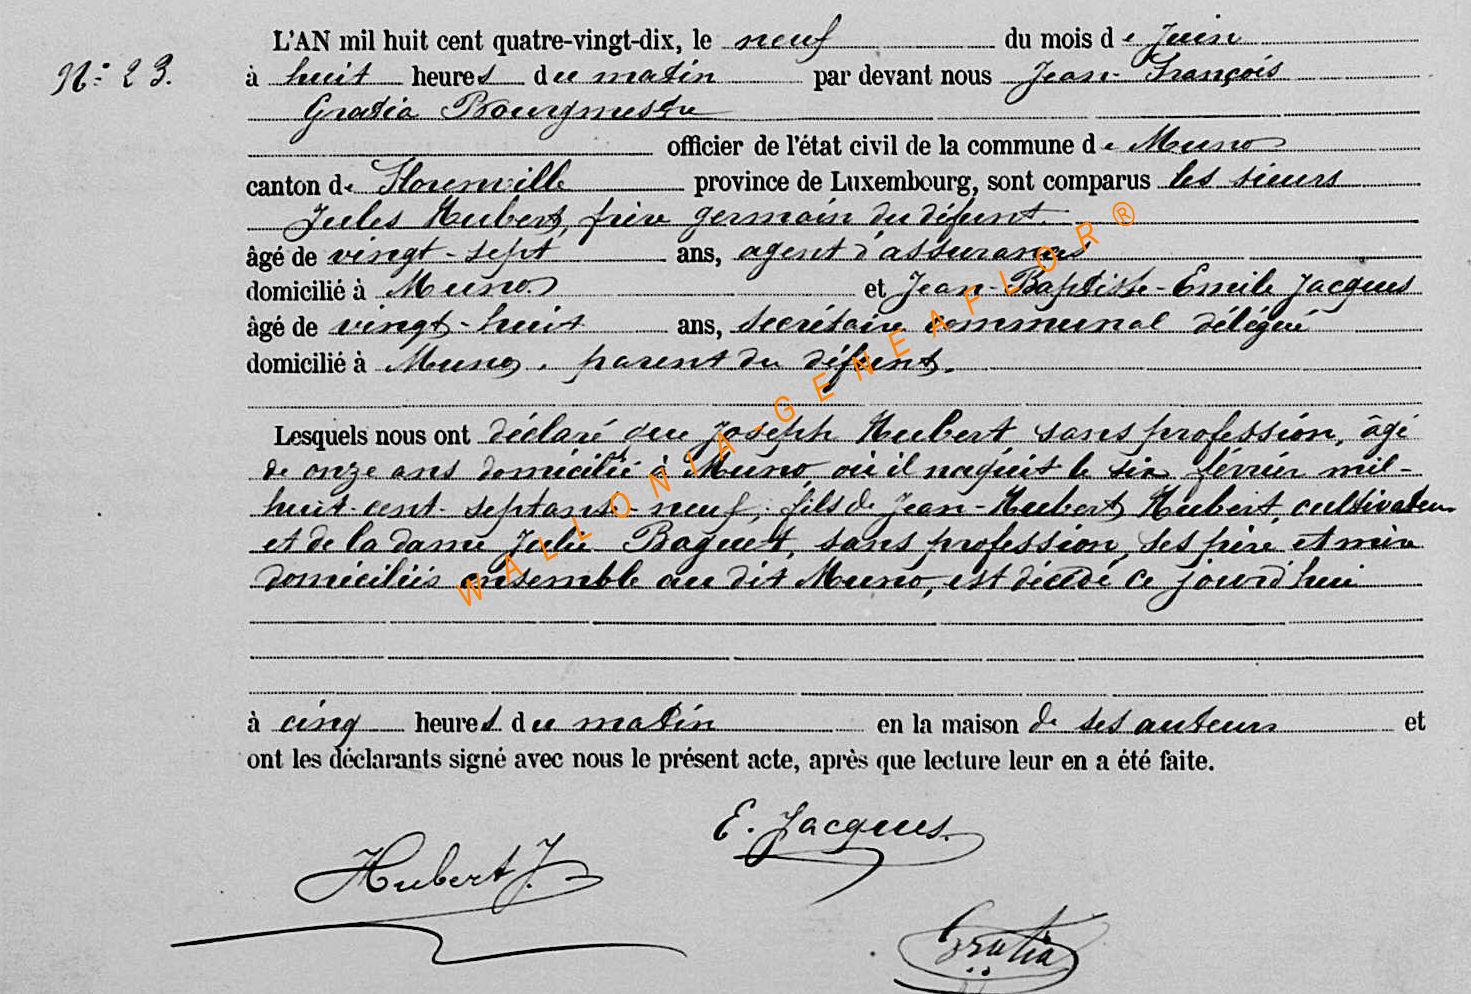 L'AN mil huit cent quatre-vingt-dix, le neuf du mois de Juin
N° 23. à huit heures du matin par devant nous Jean-François
Gratia Bourgmestre
officier de l'état civil de la commune de Muno
canton de Florenville province de Luxembourg, sont comparus les sieurs
Jules Hubert, frère germain du défunt.
âgé de vingt-sept ans, agent d'assurances
domicilié à Muno et Jean-Baptiste-Emile Jacques
âgé de vingt-huit ans, secrétaire communal délégué
domicilié à Muno, parent du défunt.
Lesquels nous ont déclaré que Joseph Hubert sans profession, âgé
de onze ans domicilié à Muno, où il naquit le six février mil-
huit-cent-septante-neuf, fils de Jean-Hubert Hubert, cultivateur
et de la dame Julie Baguet, sans profession, ses père et mère
domiciliés ensemble au dit Muno, est décédé ce jourd'hui
à cinq heures du matin en la maison de ses auteurs et
ont les déclarants signé avec nous le présent acte, après que lecture leur en a été faite.
E. Jacques.
Hubert J.
Gratia
WALLONIA-GENEAFLOR®